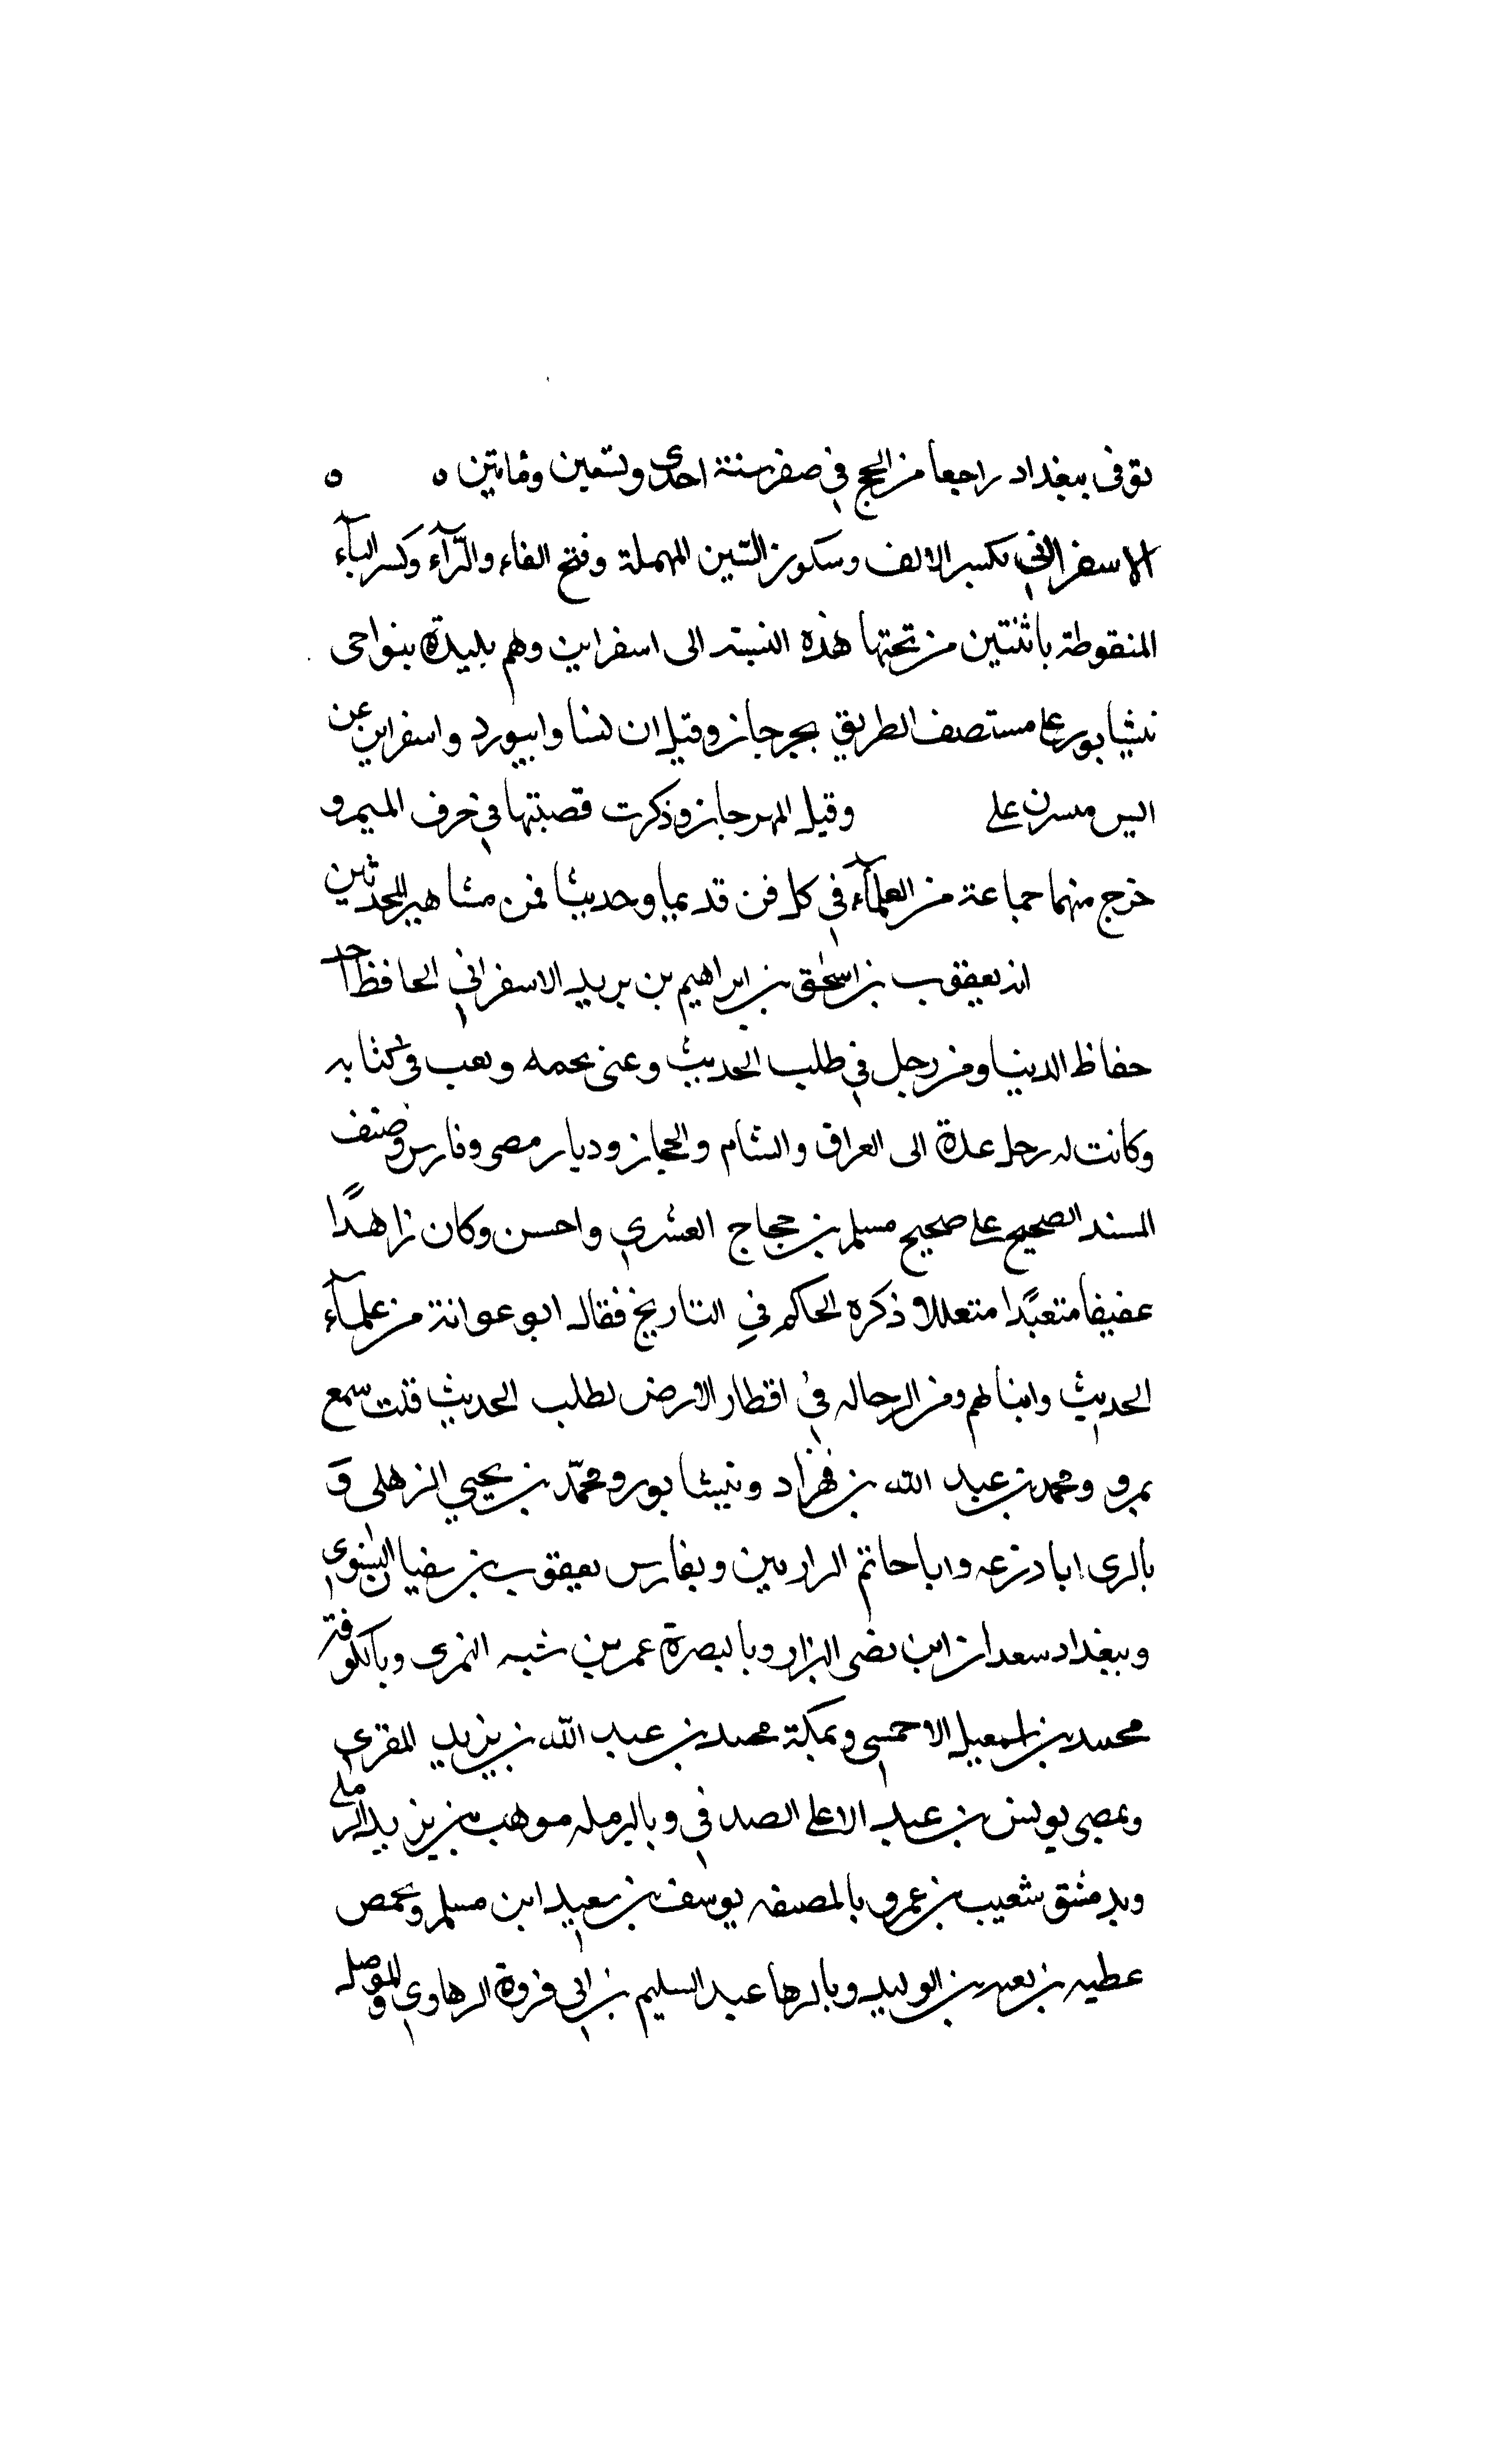 توفى ببغداد راجعا من الحج في صفر سنة احدى وتسعين ومايتين ه ه
الاسفرايني بكسر الالف وسكون السين المهملة وفتح الفاء والرآء وكسر اليآء
المنقوطة باثنتين من تحتها هذه النسبة الى اسفراين وهم بليدة بنواحى
نيشابور على مستصف الطريق بجرجان وقيل ان لنسا وابيورد واسفراين عن
على وقيل المهرجان وذكرت قصبتها في حرف الميم و
خرج منهما جماعة من العلمآء في كل فن قديما وحديثا فمن مشاهير المحدثين
يعقوب بن اسحق بن ابراهيم بن يزيد الاسفرايني الحافظ احد
حفاظ الدنيا ومن رحل في طلب الحديث وعنى بجمعه وتعب في كتابه
وكانت له رحل عدة الى العراق والشام والحجاز وديار مصر وفارس وصنف
المسند الصحيح على صحيح مسلم بن حجاج القشيري واحسن وكان زاهدًا
عفيفا متعبدًا متعللا وذكره الحاكم في التاريخ فقال ابو عوانة من علمآء
الحديث واثباتهم ومن الرحاله في اقطار الارض لطلب الحديث قلت سمع
بمرو ومحمد بن عبد الله بن قهزاد ونيشابور ومحمّد بن يحيي الزهلى و
بالرى ابا درزعه وابا حاتم الرازيين وبفارس يعقوب بن سفيان النسوي
وببغداد سعدان ابن نصر البزار وبالبصرة عمر بن شبه النمرى وبالكوفة
محمد بن اسمعيل الاحمسي وبمكة محمد بن عبد الله بن يزيد المقري
وبمصر يونس بن عبد الاعلى الصدفي وبالرمله موهب بن يزيد الرملي
وبدمشق شعيب بن عمرو بالمصيصه يوسف بن سعيد ابن مسلم وبحمص
عطيه بن بقيه بن الوليد وبالرها عبد السليم بن ابي فروة الرهاوي وبالموصل